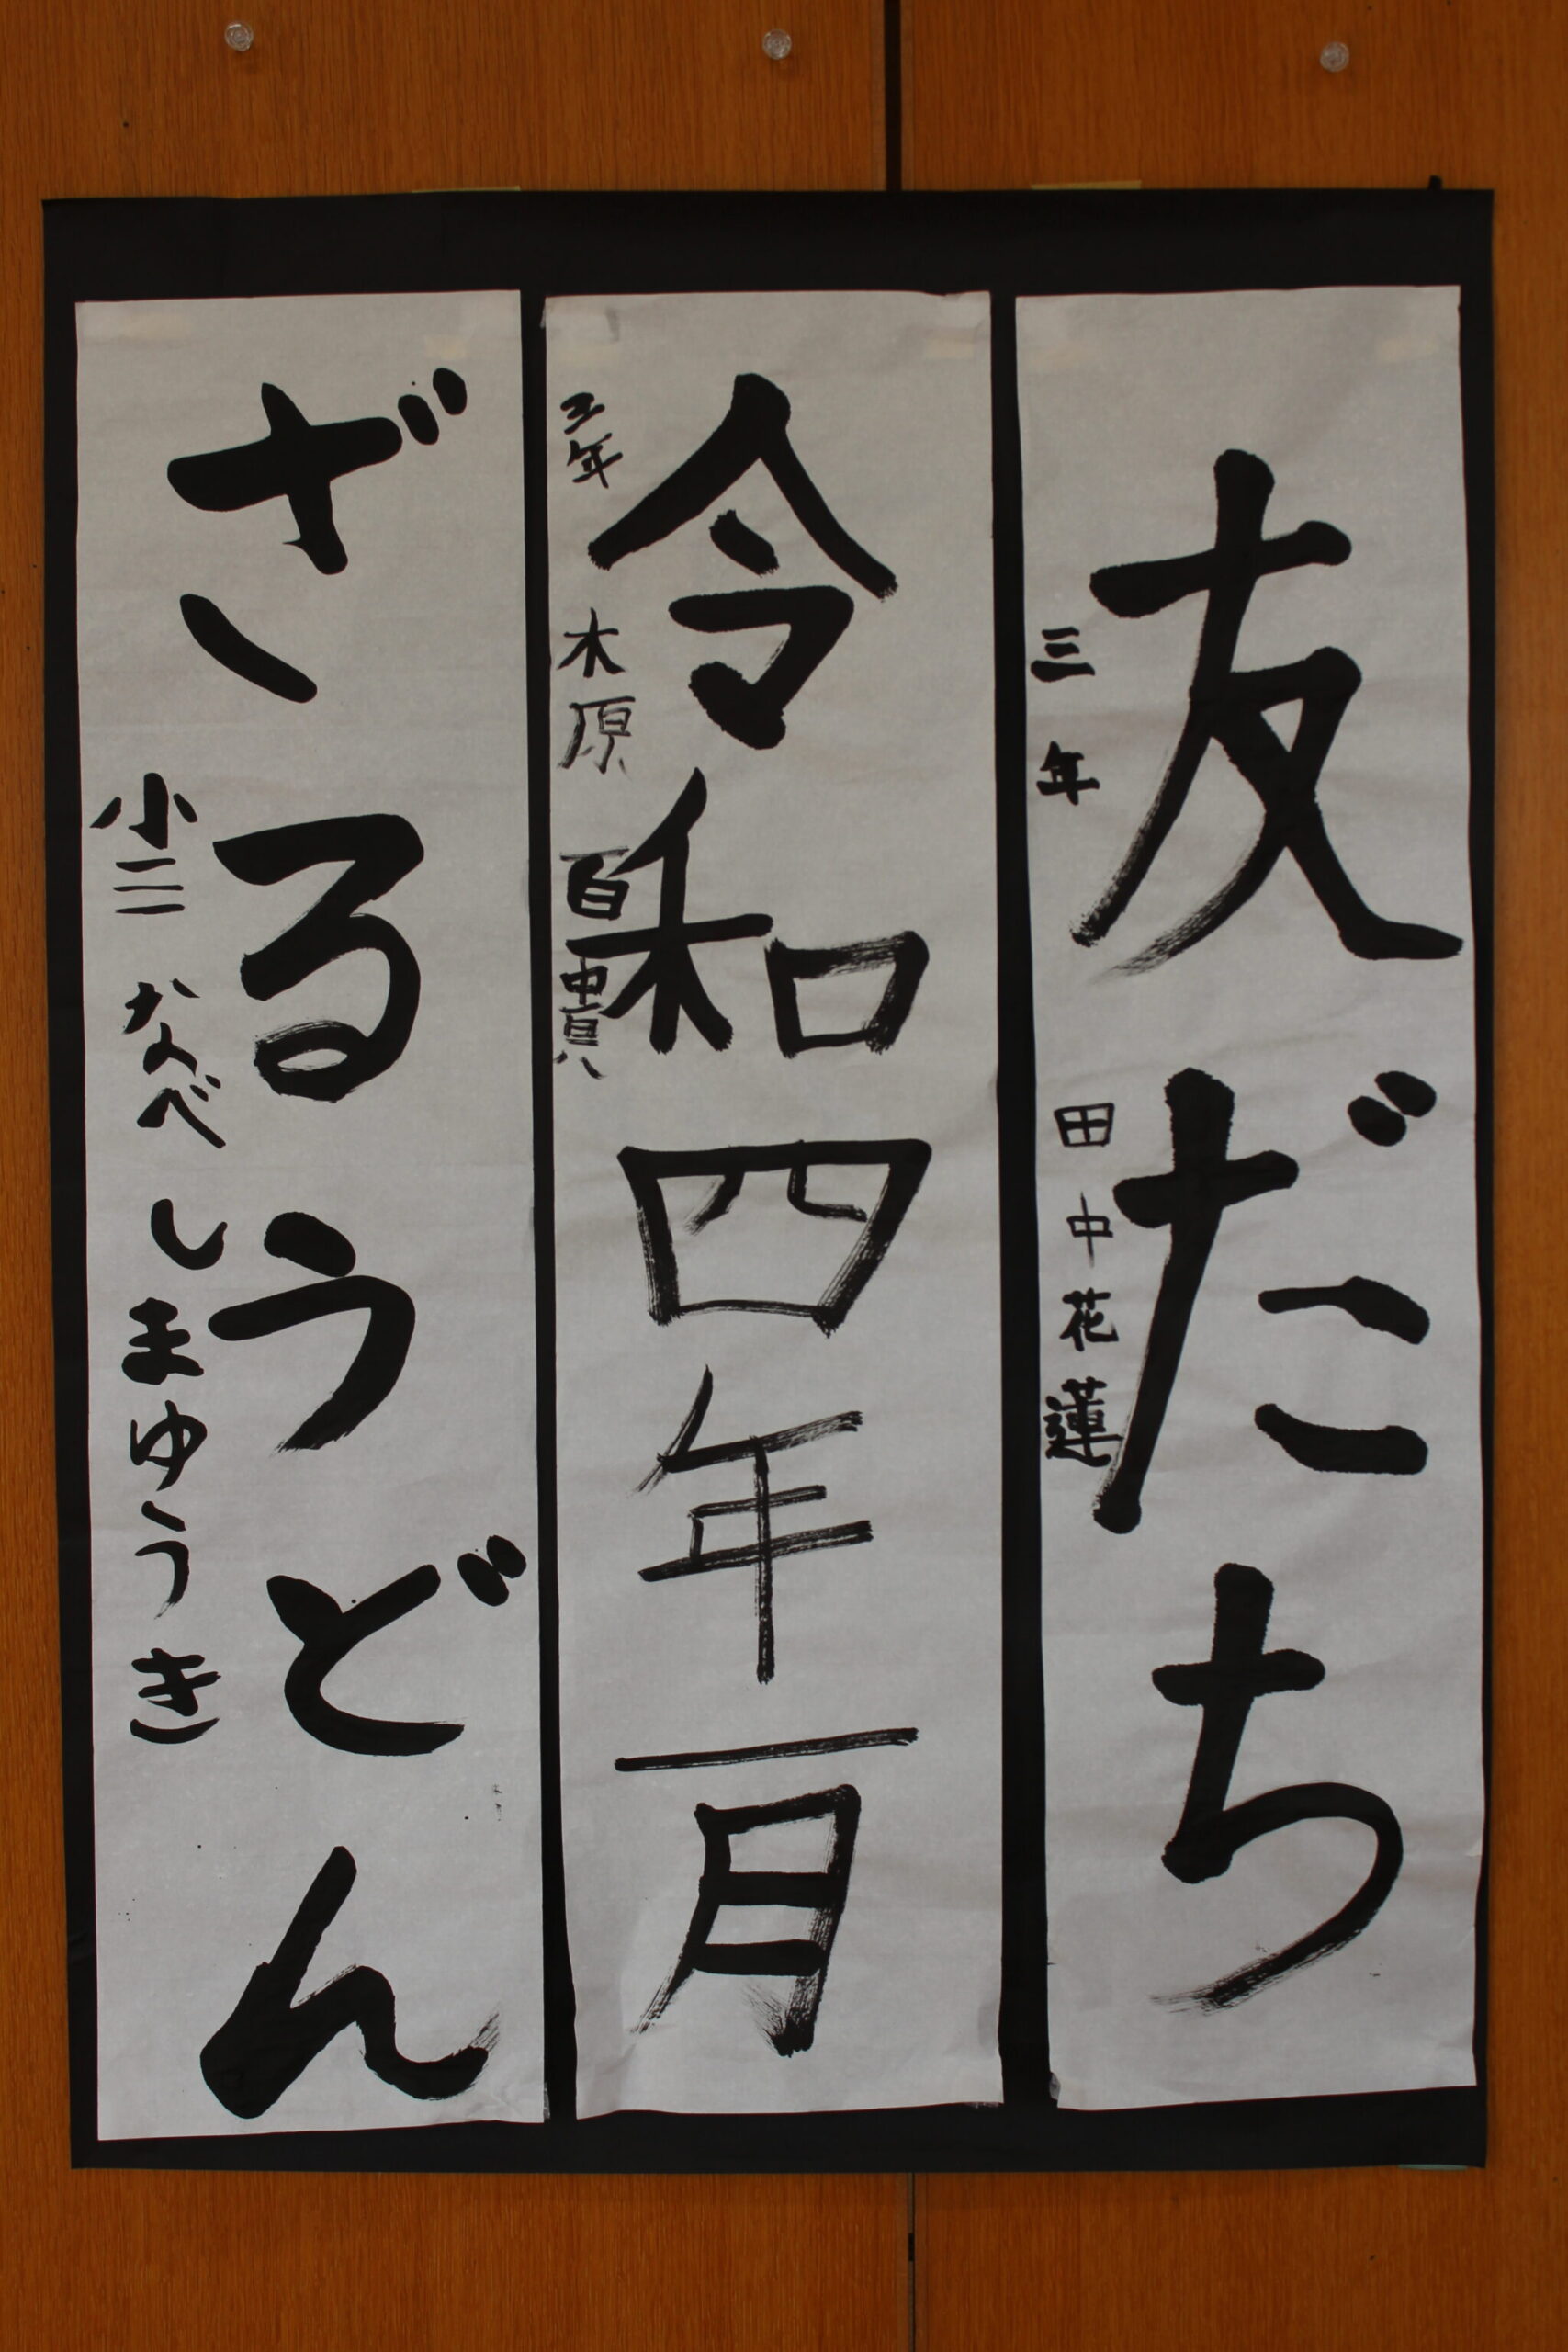 友だち
三年 田中花蓮
令和四年一月
三年 木原百貴
ざるうどん
小二 なべしまゆうき